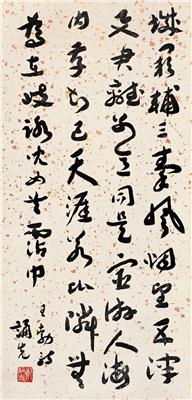 城闕輔三秦風烟望五津
与君離别意同是宦游人海
内存知己天涯若比隣無
為在歧路兒女共霑巾
王勃詩
誦先